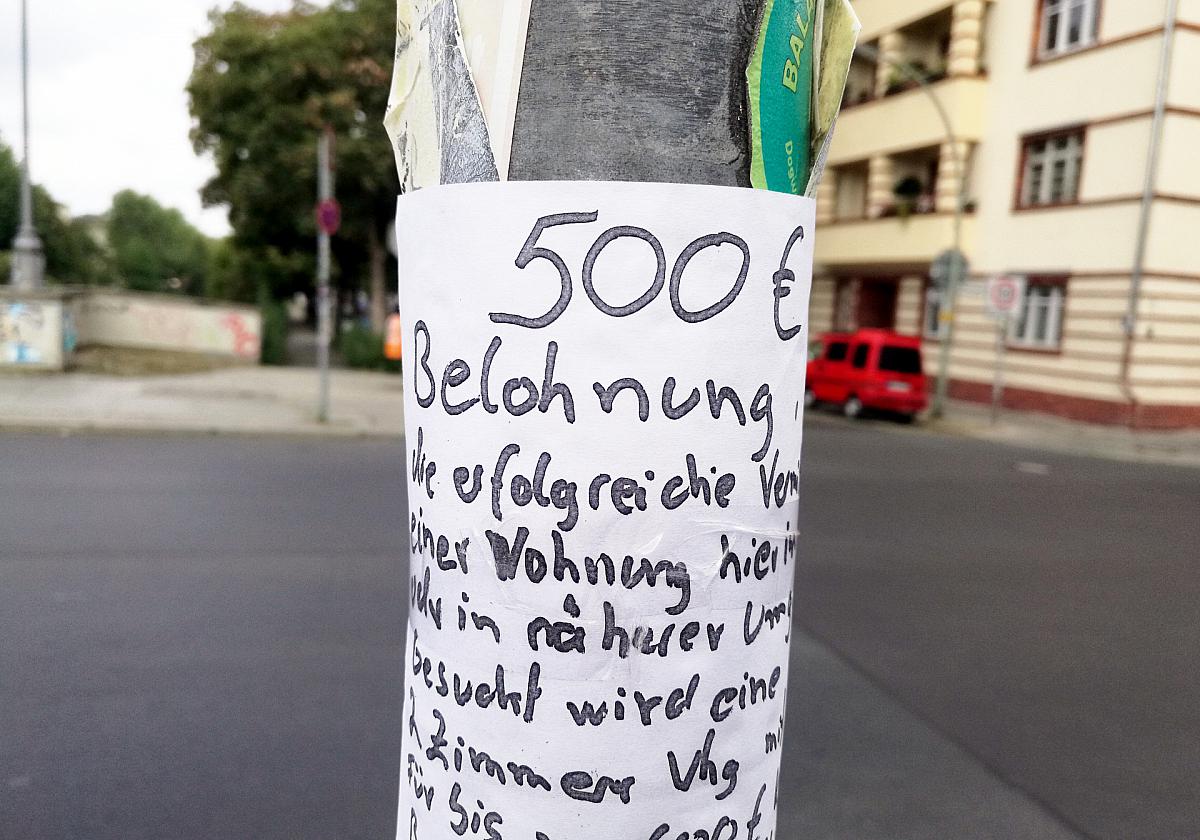 BAL
500 €
Belohnung
die erfolgreiche Verm
einer Wohnung hier i
oder in näherer Umg
Gesucht wird eine
2 Zimmer Whg mi
für bis